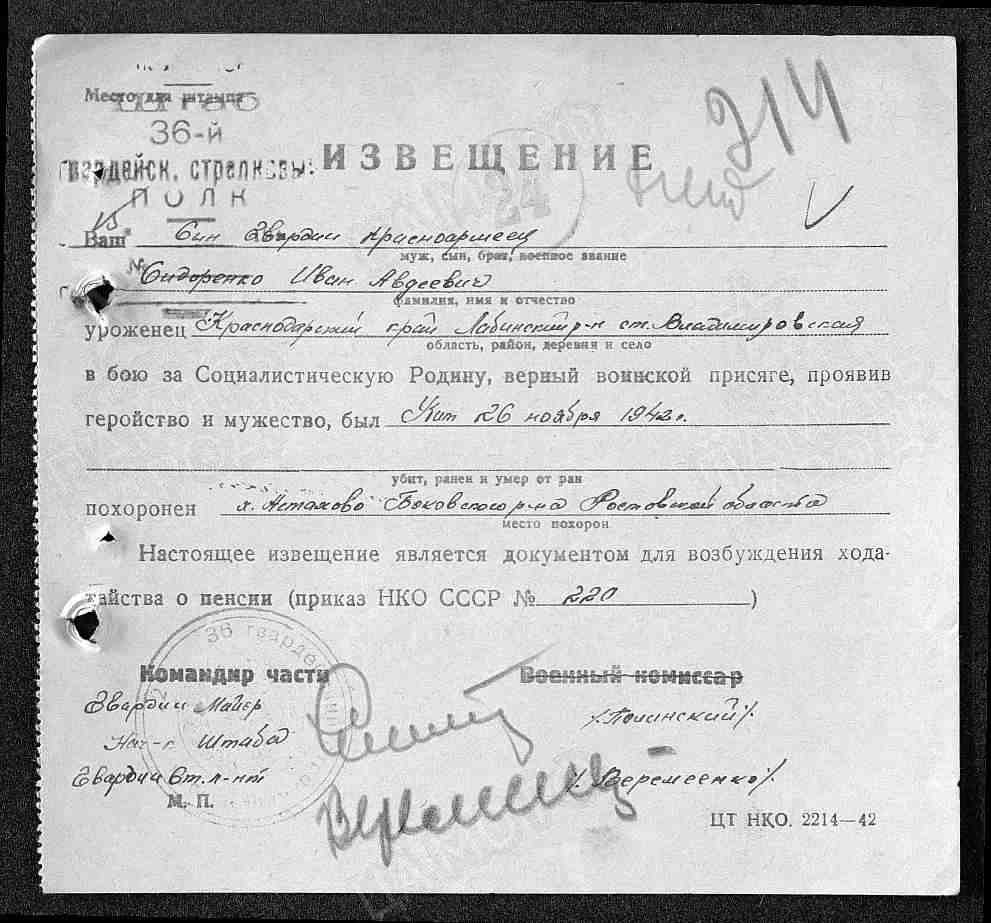 Место для штампа
ШТАБ
36-й
гвардейск. стрелковый
ПОЛК
ИЗВЕЩЕНИЕ
24
314
Ваш Син Гвардии Красноармеец
муж, сын, брат, военное звание
Сидоренко Иван Авдеевич
фамилия, имя и отчество
уроженец Краснодарский край Лабинский р-н ст. Владимировская
область, район, деревня и село
в бою за Социалистическую Родину, верный воинской присяге, проявив
геройство и мужество, был Убит 26 ноября 1942 г.
убит, ранен и умер от ран
похоронен х. Астахово Боковского р-на Ростовской области
место похорон
Настоящее извещение является документом для возбуждения хода-
тайства о пенсии (приказ НКО СССР № 220 )
36 гвардей
Командир части Военный комиссар
Гвардии Майор /Полинский/.
Нач-к Штаба
Гвардии Ст. л-нт /Веремеенко/.
М. П.
ЦТ НКО. 2214—42